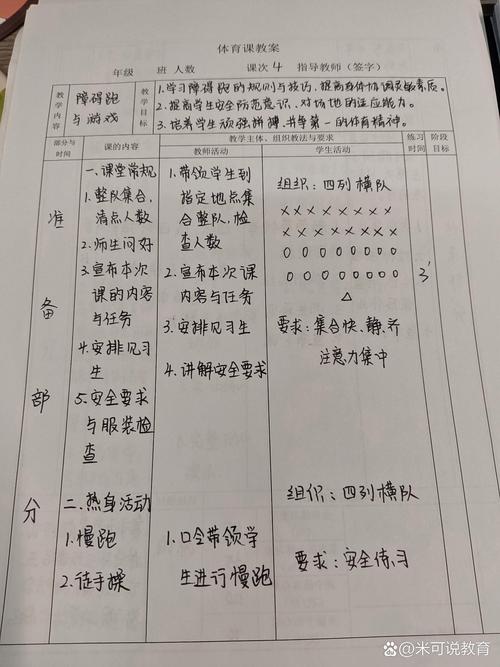 体育课教案
年级 班 人数 课次 4 指导教师（签字）
教学内容
障碍跑
与游戏
教学目标
1.学习障碍跑的规则与技巧，提高身体协调灵敏素质。
2.提高学生安全防范意识、对场地的适应能力。
3.培养学生顽强拼搏、共争第一的体育精神。
部分与时间
课的内容
教学主体、组织教法与要求
教师活动
学生活动
练习时间
阶段目标
准备部分
一.课堂常规
1.整队集合,
清点人数
2.师生问好
3.宣布本次
课的内容
与任务
4.安排见习
生
5.安全要求
与服装检
查
二.热身活动
1.慢跑
2.徒手操
1.带领学生到
指定地点集
合整队,检
查人数
2.宣布本次课
内容与任务
3.安排见习生
4.讲解安全要求
1.口令带领学
生进行慢跑
组织：四列横队
× × × × × × × ×
× × × × × × × ×
0 0 0 0 0 0 0 0
0 0 0 0 0 0 0 0
△
要求：集合快、静、齐
注意力集中
组织：四列横队
要求：安全练习
3'
米可说教育